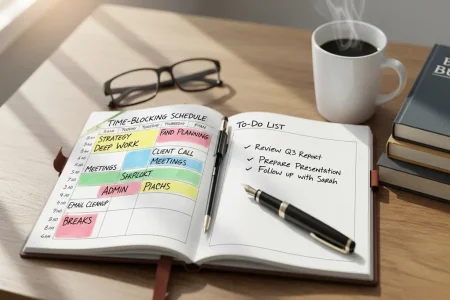 TIME-BLOCKING SCHEDULE
STRATEGY
DEEP WORK
FAND PLANNING
CLIENT CALL
MEETINGS
MEETINGS
ADMIN
EMAIL CLEANUP
BREAKS
TO-DO LIST
✓ Review Q3 Report
✓ Prepare Presentation
✓ Follow up with Sarah